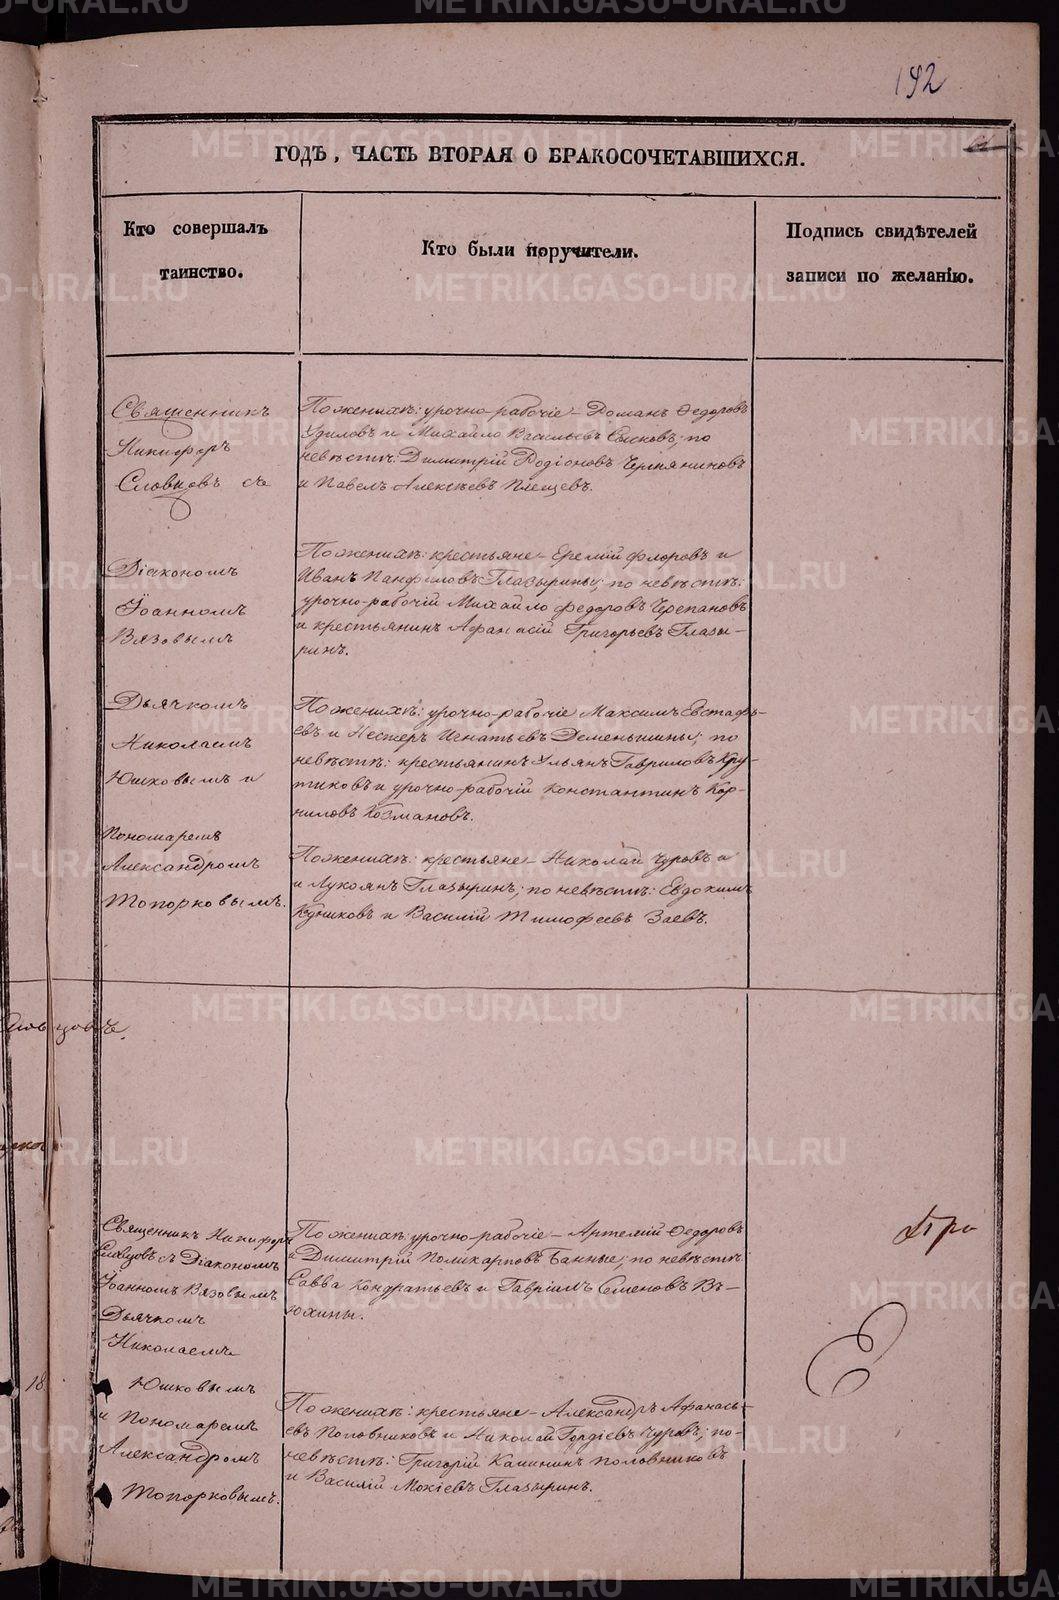 192
ГОДЪ, ЧАСТЬ ВТОРАЯ О БРАКОСОЧЕТАВШИХСЯ.
Кто совершалъ
таинство.
Кто были поручители.
Подпись свидѣтелей
записи по желанію.
Священникъ
Никифоръ
Словцовъ съ
Діакономъ
Іоанномъ
Вязовымъ
Дьячкомъ
Николаемъ
Юшковымъ и
Пономаремъ
Александромъ
Топорковымъ.
По женихѣ: урочно-рабочіе – Романъ Ѳедоровъ
и Михайло Васильевъ по
невѣстѣ: Димитрій Родіоновъ Черпяниновъ
и Павелъ Алексѣевъ Плещевъ.
По женихѣ: крестьяне – Еремій Флоровъ и
Иванъ Панфиловъ Глазырины; по невѣстѣ:
урочно-рабочій Михайло Федоровъ Черепановъ
и крестьянинъ Афанасій Григорьевъ Глазы-
ринъ.
По женихѣ: урочно-рабочіе Максимъ Евстафь-
евъ и Нестеръ Игнатьевъ Деменьшины; по
невѣстѣ: крестьянинъ Ульянъ Гавриловъ Кру-
тиковъ и урочно-рабочій Константинъ Кор-
ниловъ Козмановъ.
По женихѣ: крестьяне – Николай Чуровъ и
и Лукоянъ Глазыринъ; по невѣстѣ: Евдокимъ
Кудниковъ и Василій Тимофеевъ Заевъ.
Словцовъ.
Священникъ Никифоръ
Словцовъ съ Діакономъ
Іоанномъ Вязовымъ
Дьячкомъ
Николаемъ
Юшковымъ
и Пономаремъ
Александромъ
Топорковымъ.
По женихѣ: урочно-рабочіе – Артемій Ѳедоровъ
и Димитрій Поликарповъ Банные; по невѣстѣ
Савва Кондратьевъ и Гавріилъ Семеновъ Вь-
юхины.
По женихѣ: крестьяне – Александръ Афанась-
евъ Половниковъ и Николай Гордіевъ Чуровъ; по
невѣстѣ: Григорій Калининъ Половниковъ
и Василій Мокіевъ Глазыринъ.
18
METRIKI.GASO-URAL.RU